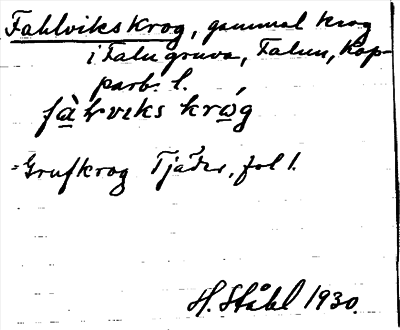 Fahlvikskrog, gammal krog
i Falu gruva, Falun, Kop-
parb. l.
fàlviks króg
=Grufkrog Tjäder, fol 1.
H. Ståhl 1930.